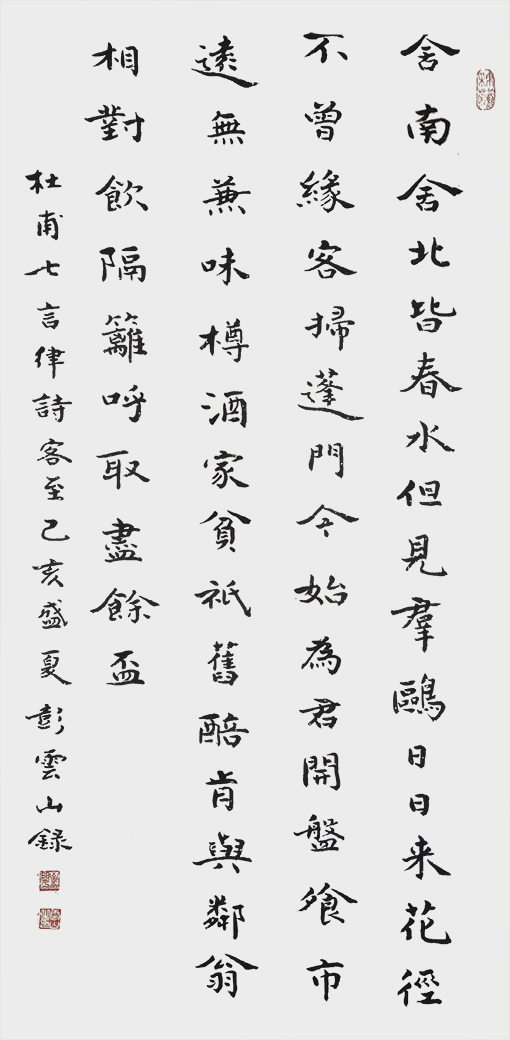 舍南舍北皆春水但見羣鷗日日来花徑
不曾緣客掃蓬門今始為君開盤飧市
遠無兼味樽酒家貧祇舊醅肯與鄰翁
相對飲隔籬呼取盡餘盃
杜甫七言律詩客至己亥盛夏彭雲山録